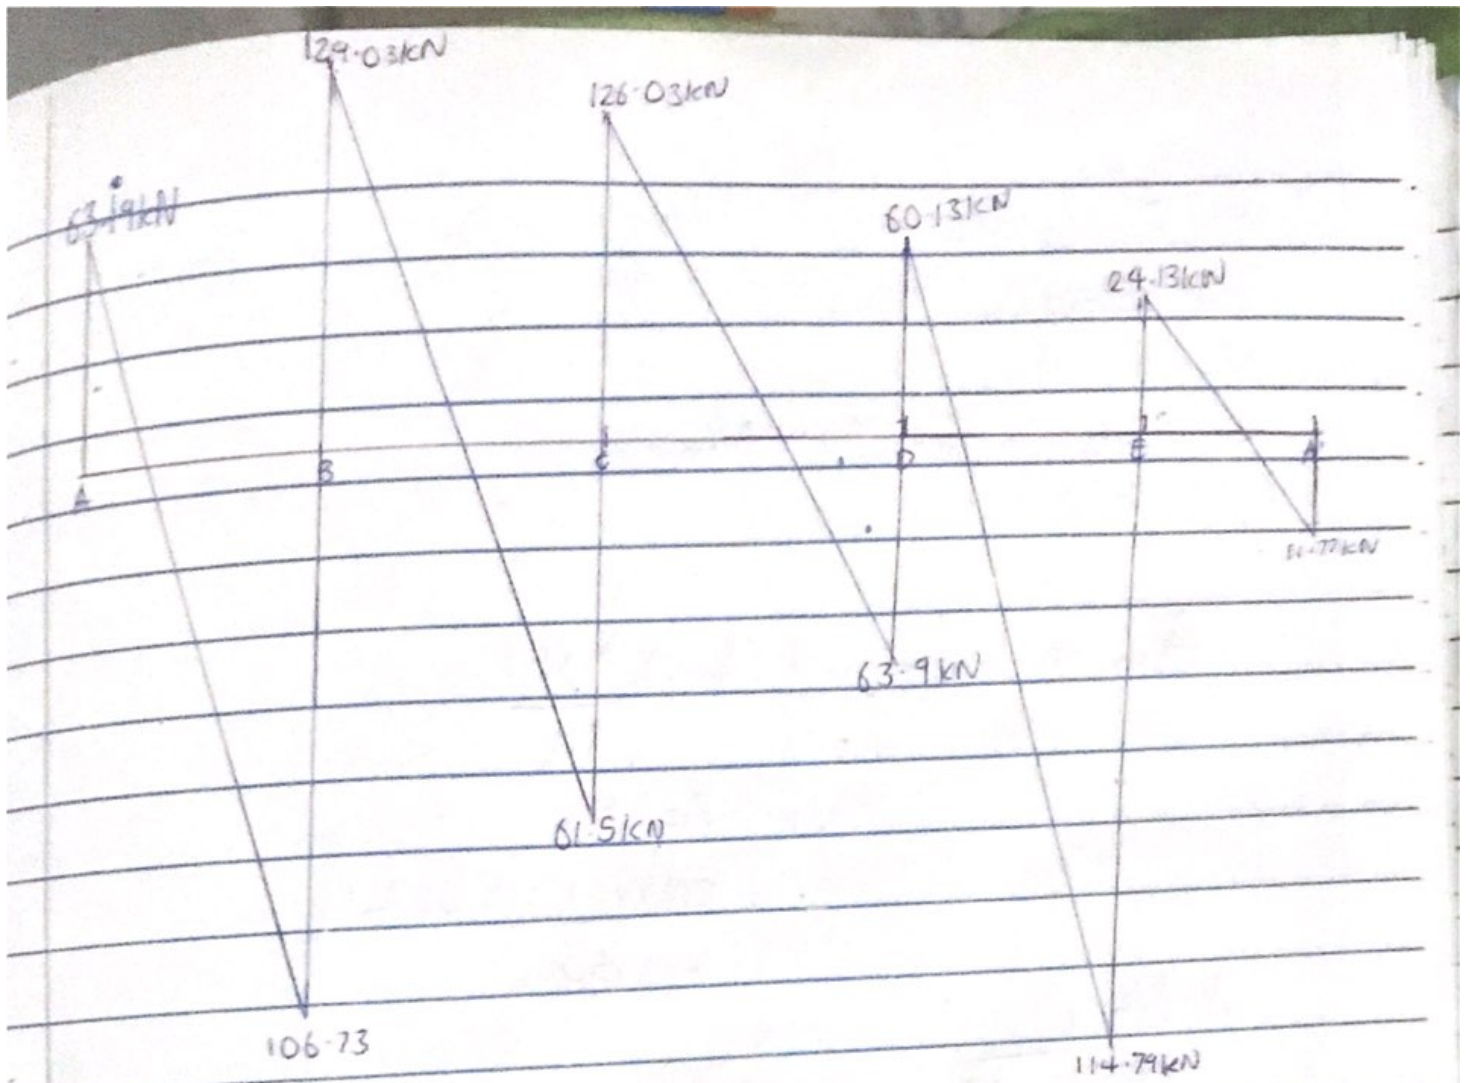 129.03kN
126.03kN
63.19kN
60.13kN
24.13kN
A
B
C
D
E
63.9kN
61.5kN
106.73
114.79kN